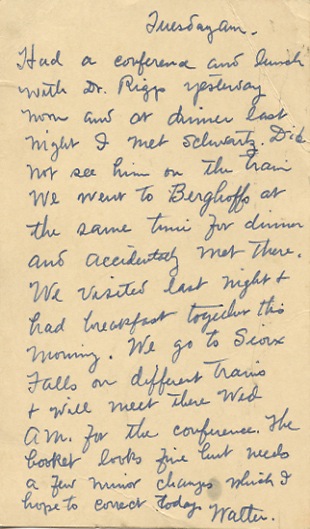 Tuesday am.
Had a conference and lunch
with Dr. Riggs yesterday
noon and at dinner last
night I met Schwartz. Did
not see him on the train
We went to Berghoffs at
the same time for dinner
and accidently met there.
We visited last night +
had breakfast together this
morning. We go to Sioux
Falls on different trains
+ will meet there Wed
AM. for the conference. The
booket looks fine but needs
a few minor changes which I
hope to correct today. Walter.